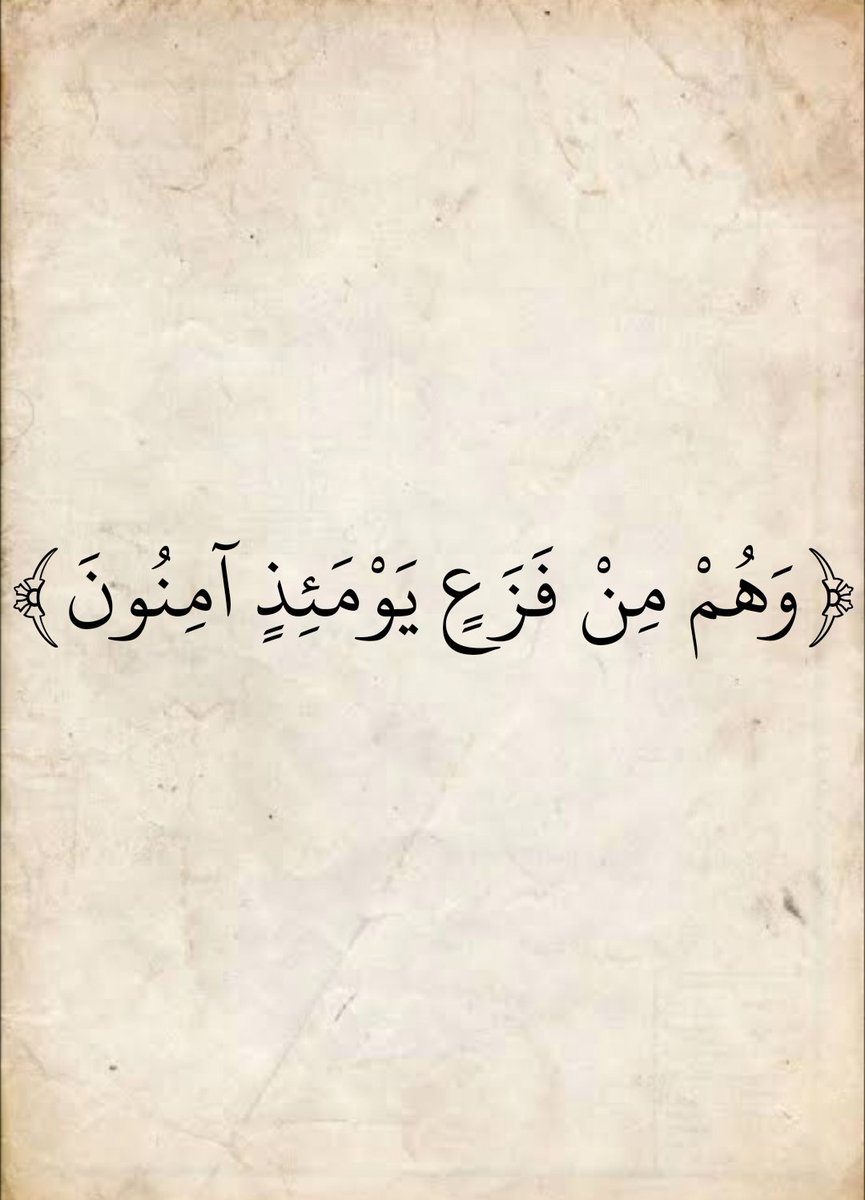 ﴿وَهُمْ مِنْ فَزَعٍ يَوْمَئِذٍ آمِنُونَ﴾